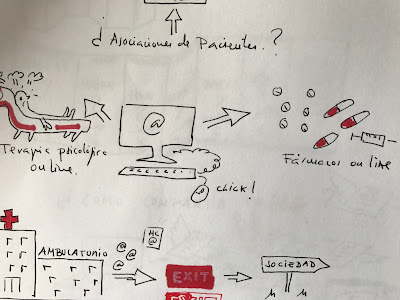 ¿ Asociaciones de Pacientes.?
@
Terapia psicológica
on line.
Fármacos on line
chick!
AMBULATORIO
HC
@
@
@
@
@
EXIT
SOCIEDAD